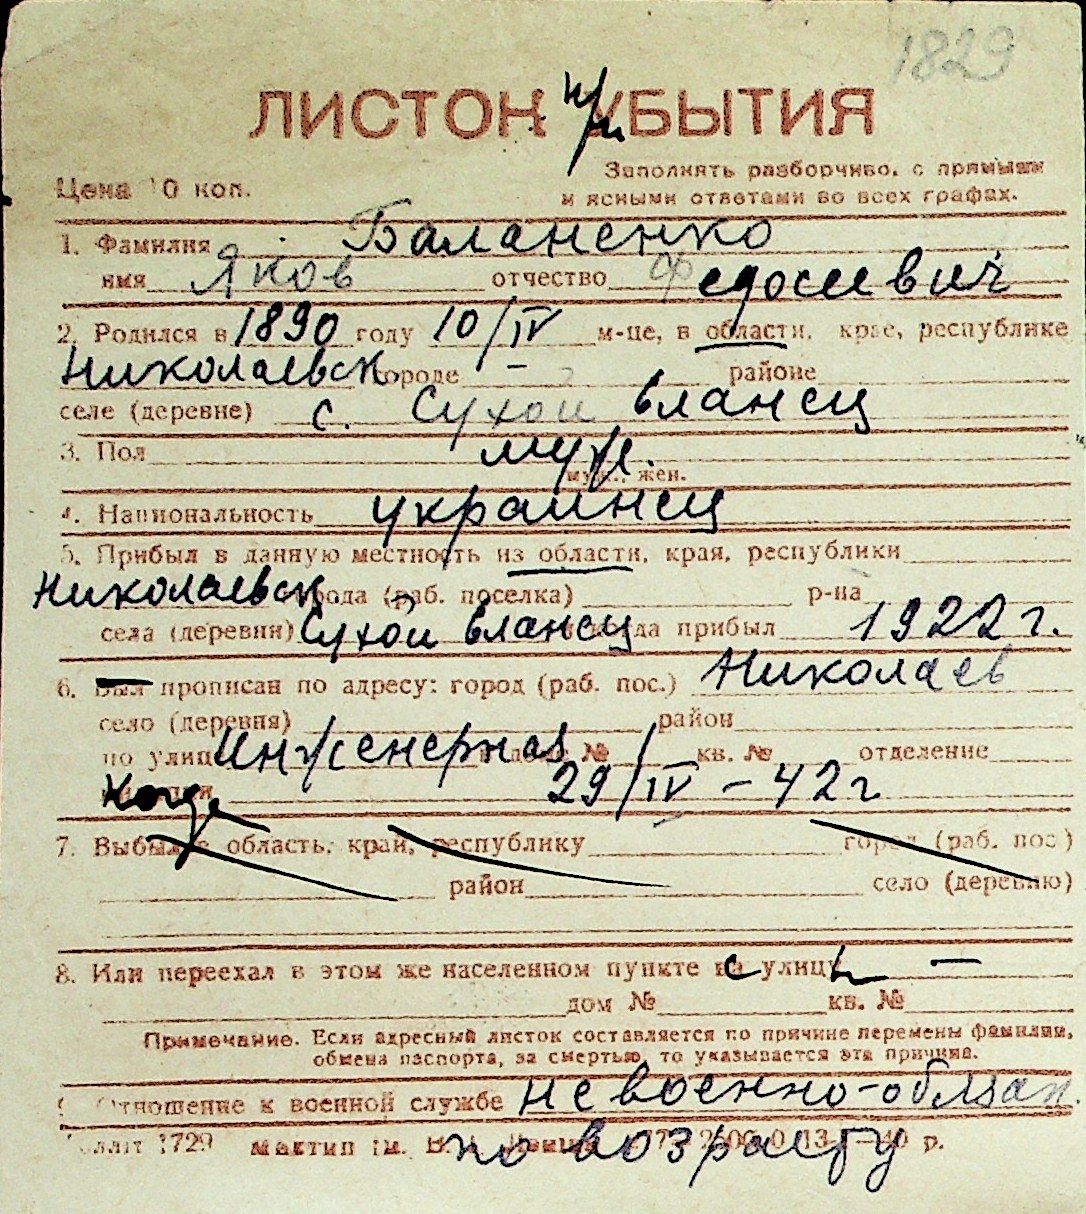 1829
ЛИСТОК УБЫТИЯ
Цена 10 коп.
Заполнять разборчиво, с прямыми
и ясными ответами во всех графах.
1. Фамилия Баланенко
имя Яков отчество Федосеевич
2. Родился в 1890 году 10/IV м-це, в области, крае, республике
Николаевск. городе – районе
селе (деревне) с. Сухой Еланец
3. Пол муж.
муж., жен.
4. Национальность украинец
5. Прибыл в данную местность из области, края, республики
Николаевск. города (раб. поселка) р-на
села (деревни) Сухой Еланец когда прибыл 1922 г.
6. Был прописан по адресу: город (раб. пос.) Николаев
село (деревня) район
по улице Инженерная дом № кв. № отделение
Когда 29/IV – 42 г
7. Выбыл в область, край, республику город (раб. пос.)
район село (деревню)
8. Или переехал в этом же населенном пункте с улицы –
дом № кв. №
Примечание. Если адресный листок составляется по причине перемены фамилии,
обмена паспорта, за смертью, то указывается эта причина.
9. Отношение к военной службе не военно-обязан.
1729 по возрасту р.